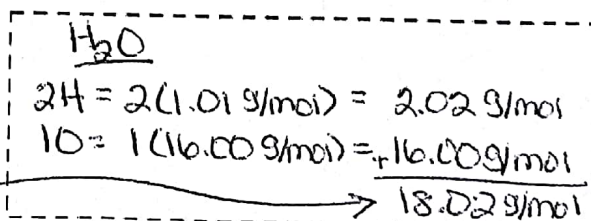 H₂O
2H = 2(1.01 g/mol) = 2.02 g/mol
1O = 1(16.00 g/mol) = +16.00 g/mol
18.02 g/mol